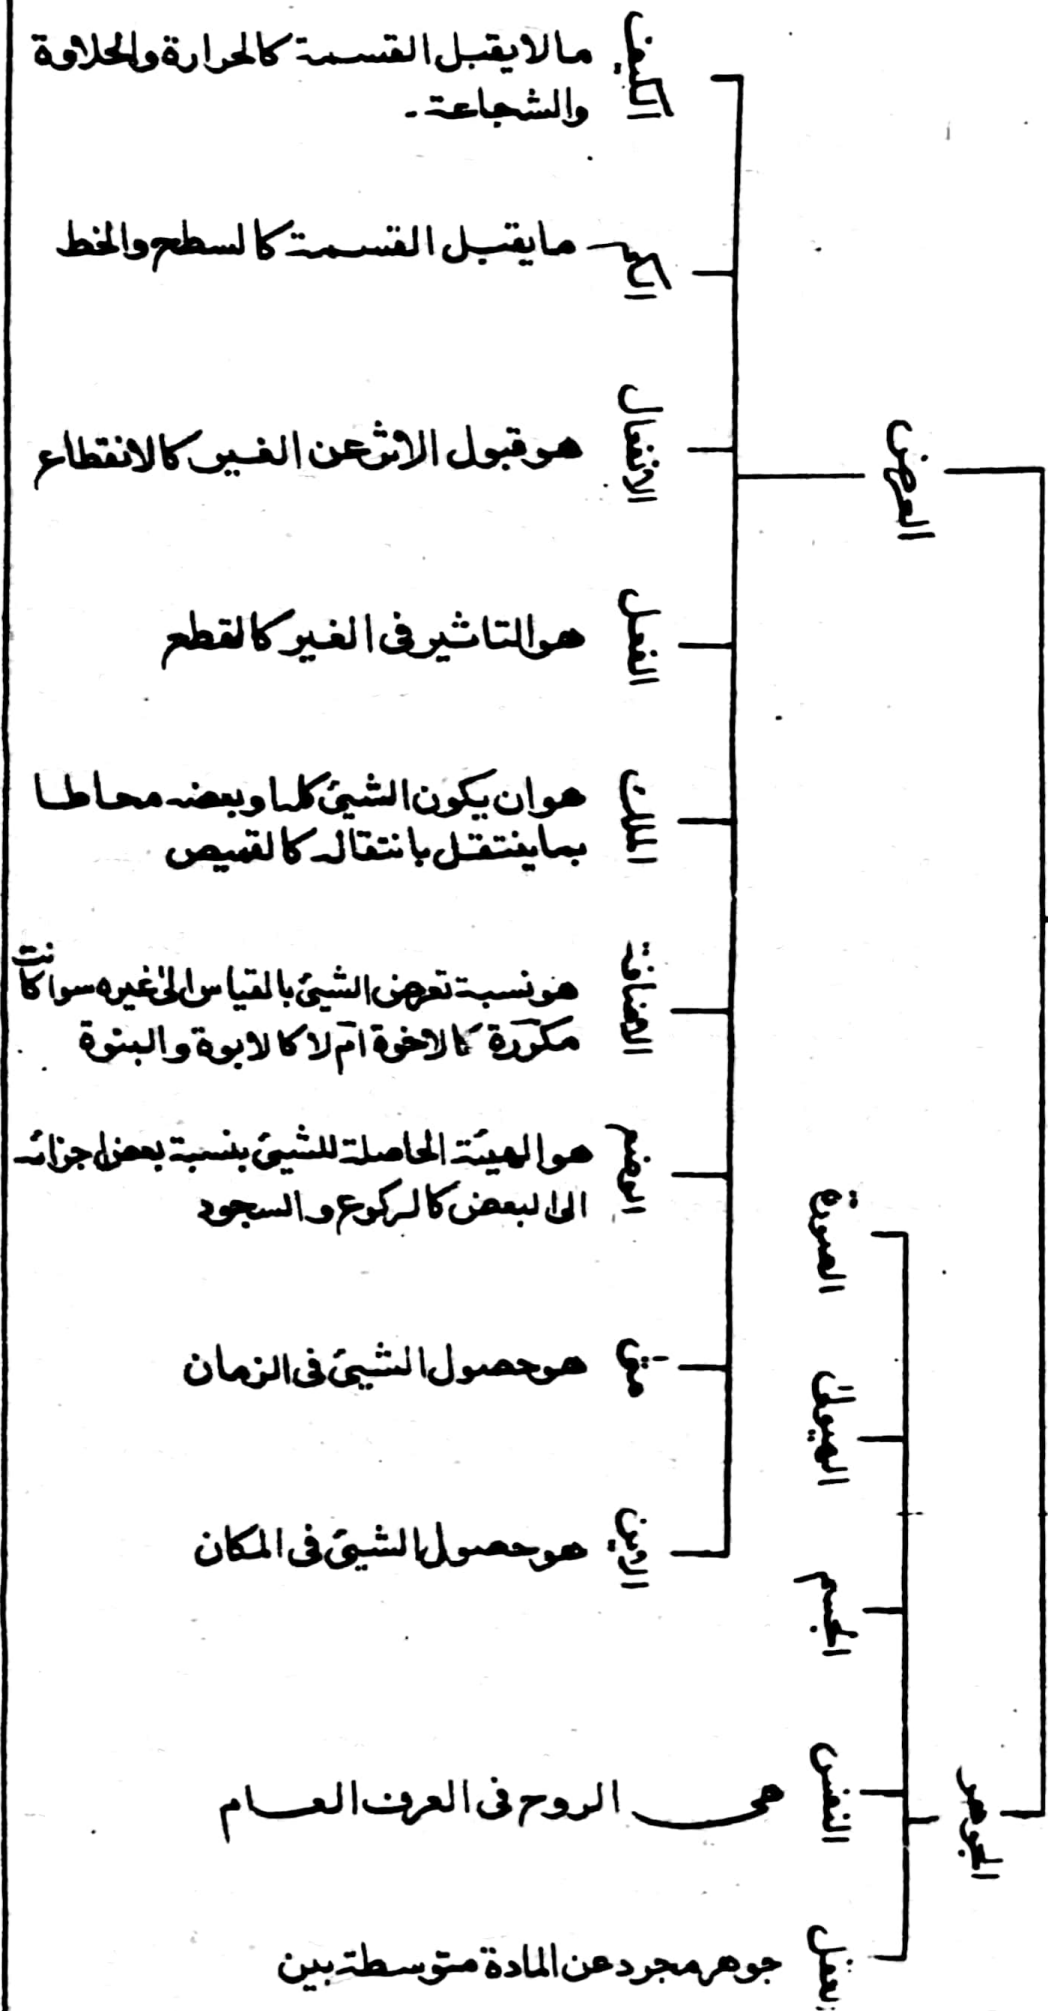 الكيف
مالا يقبل القسمة كالحرارة والحلاوة
والشجاعة-
الكم
ما يقبل القسمة كالسطح والخط
العرض
الانفعال
هو قبول الاثر عن الغير كالانقطاع
الفعل
هو التاثير فى الغير كالقطع
الملك
هو ان يكون الشيئ كله او بعضه محاطا
بما ينتقل بانتقاله كالقميص
الاضافة
هو نسبة تعرض الشيئ بالقياس الى غيره سوا كانت
مكررة كالاخوة ام لا كالابوة والبنوة
الوضع
هو الهيئة الحاصلة للشيئ بنسبة بعض اجزائه
الى البعض كالركوع والسجود
متى
هو حصول الشيئ فى الزمان
الاين
هو حصول الشيئ فى المكان
الجوهر
الصورة
الهيولى
الجسم
النفس
هى الروح فى العرف العام
العقل
جوهر مجرد عن المادة متوسطة بين